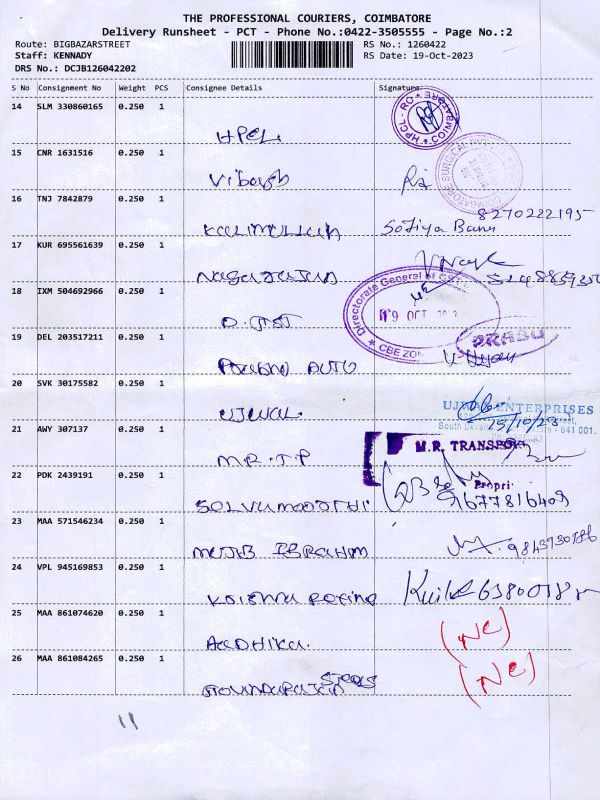 THE PROFESSIONAL COURIERS, COIMBATORE
Delivery Runsheet - PCT - Phone No.:0422-3505555 - Page No.:2
Route: BIGBAZARSTREET RS No.: 1260422
Staff: KENNADY RS Date: 19-Oct-2023
DRS No.: DCJB126042202
S No Consignment No Weight PCS Consignee Details Signature
14 SLM 330860165 0.250 1
HPCL
HPCL - RO COIMBATORE
15 CNR 1631516 0.250 1
COIMBATORE SURGICAL
16 TNJ 7842879 0.250 1
8270222195
Kalimullah Sofiya Banu
17 KUR 695561639 0.250 1
Nagarajan
18 IXM 504692966 0.250 1
Directorate General of
19 OCT
CBE ZO
D. GST
19 DEL 203517211 0.250 1
PRABU
Prabhu Auto
20 SVK 30175582 0.250 1
UJWAL
UJWAL ENTERPRISES
South Ukkadam 641 001.
21 AWY 307137 0.250 1
M.R. TRANSPORT
MR.T.P
22 PDK 2439191 0.250 1
Propri
9677816409
23 MAA 571546234 0.250 1
IBRAHIM
9843730786
24 VPL 945169853 0.250 1
25 MAA 861074620 0.250 1
AADHIKA.
(NC)
26 MAA 861084265 0.250 1
(NC)
Govindarajan Steels
11